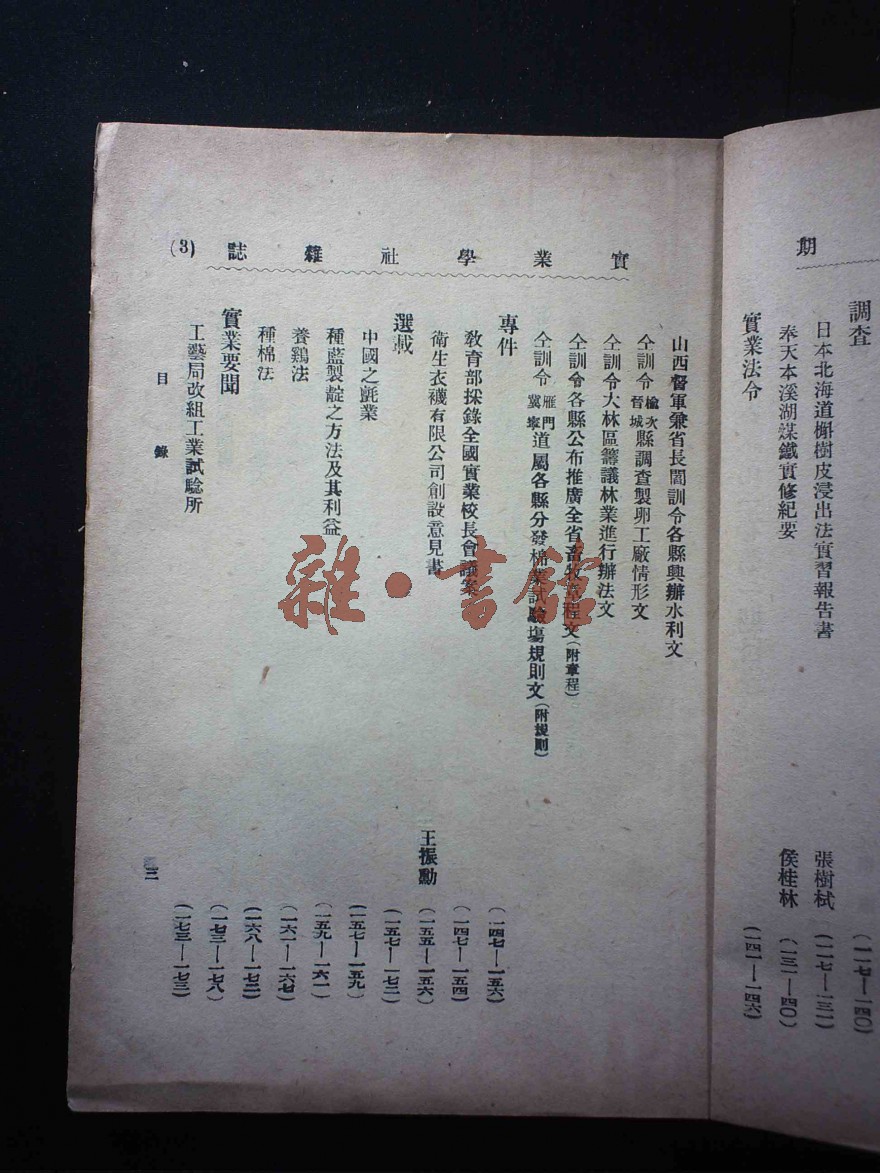 期
調查
(一一七—一四〇)
日本北海道槲樹皮浸出法實習報告書 張樹栻 (一一七—一三一)
奉天本溪湖煤鐵實修紀要 侯桂林 (一三一—四〇)
實業法令 (一四一—一四六)
實業學社雜誌 (3)
山西督軍兼省長閻訓令各縣興辦水利文
仝訓令榆次晉城縣調查製卵工廠情形文
仝訓令大林區籌議林業進行辦法文
仝訓令各縣公布推廣全省畜牧章程文(附章程)
仝訓令雁門冀寧道屬各縣分發棉業試驗場規則文(附規則)
專件 (一四七—一五六)
教育部採錄全國實業校長會議案 (一四七—一五四)
衛生衣襪有限公司創設意見書 王振勳 (一五五—一五六)
選載 (一五七—一七二)
中國之氈業 (一五七—一五九)
種藍製靛之方法及其利益 (一五九—一六一)
養鷄法 (一六一—一六七)
種棉法 (一六八—一七二)
實業要聞 (一七三—一七八)
工藝局改組工業試驗所 (一七三—一七三)
目錄
三
雜·書館